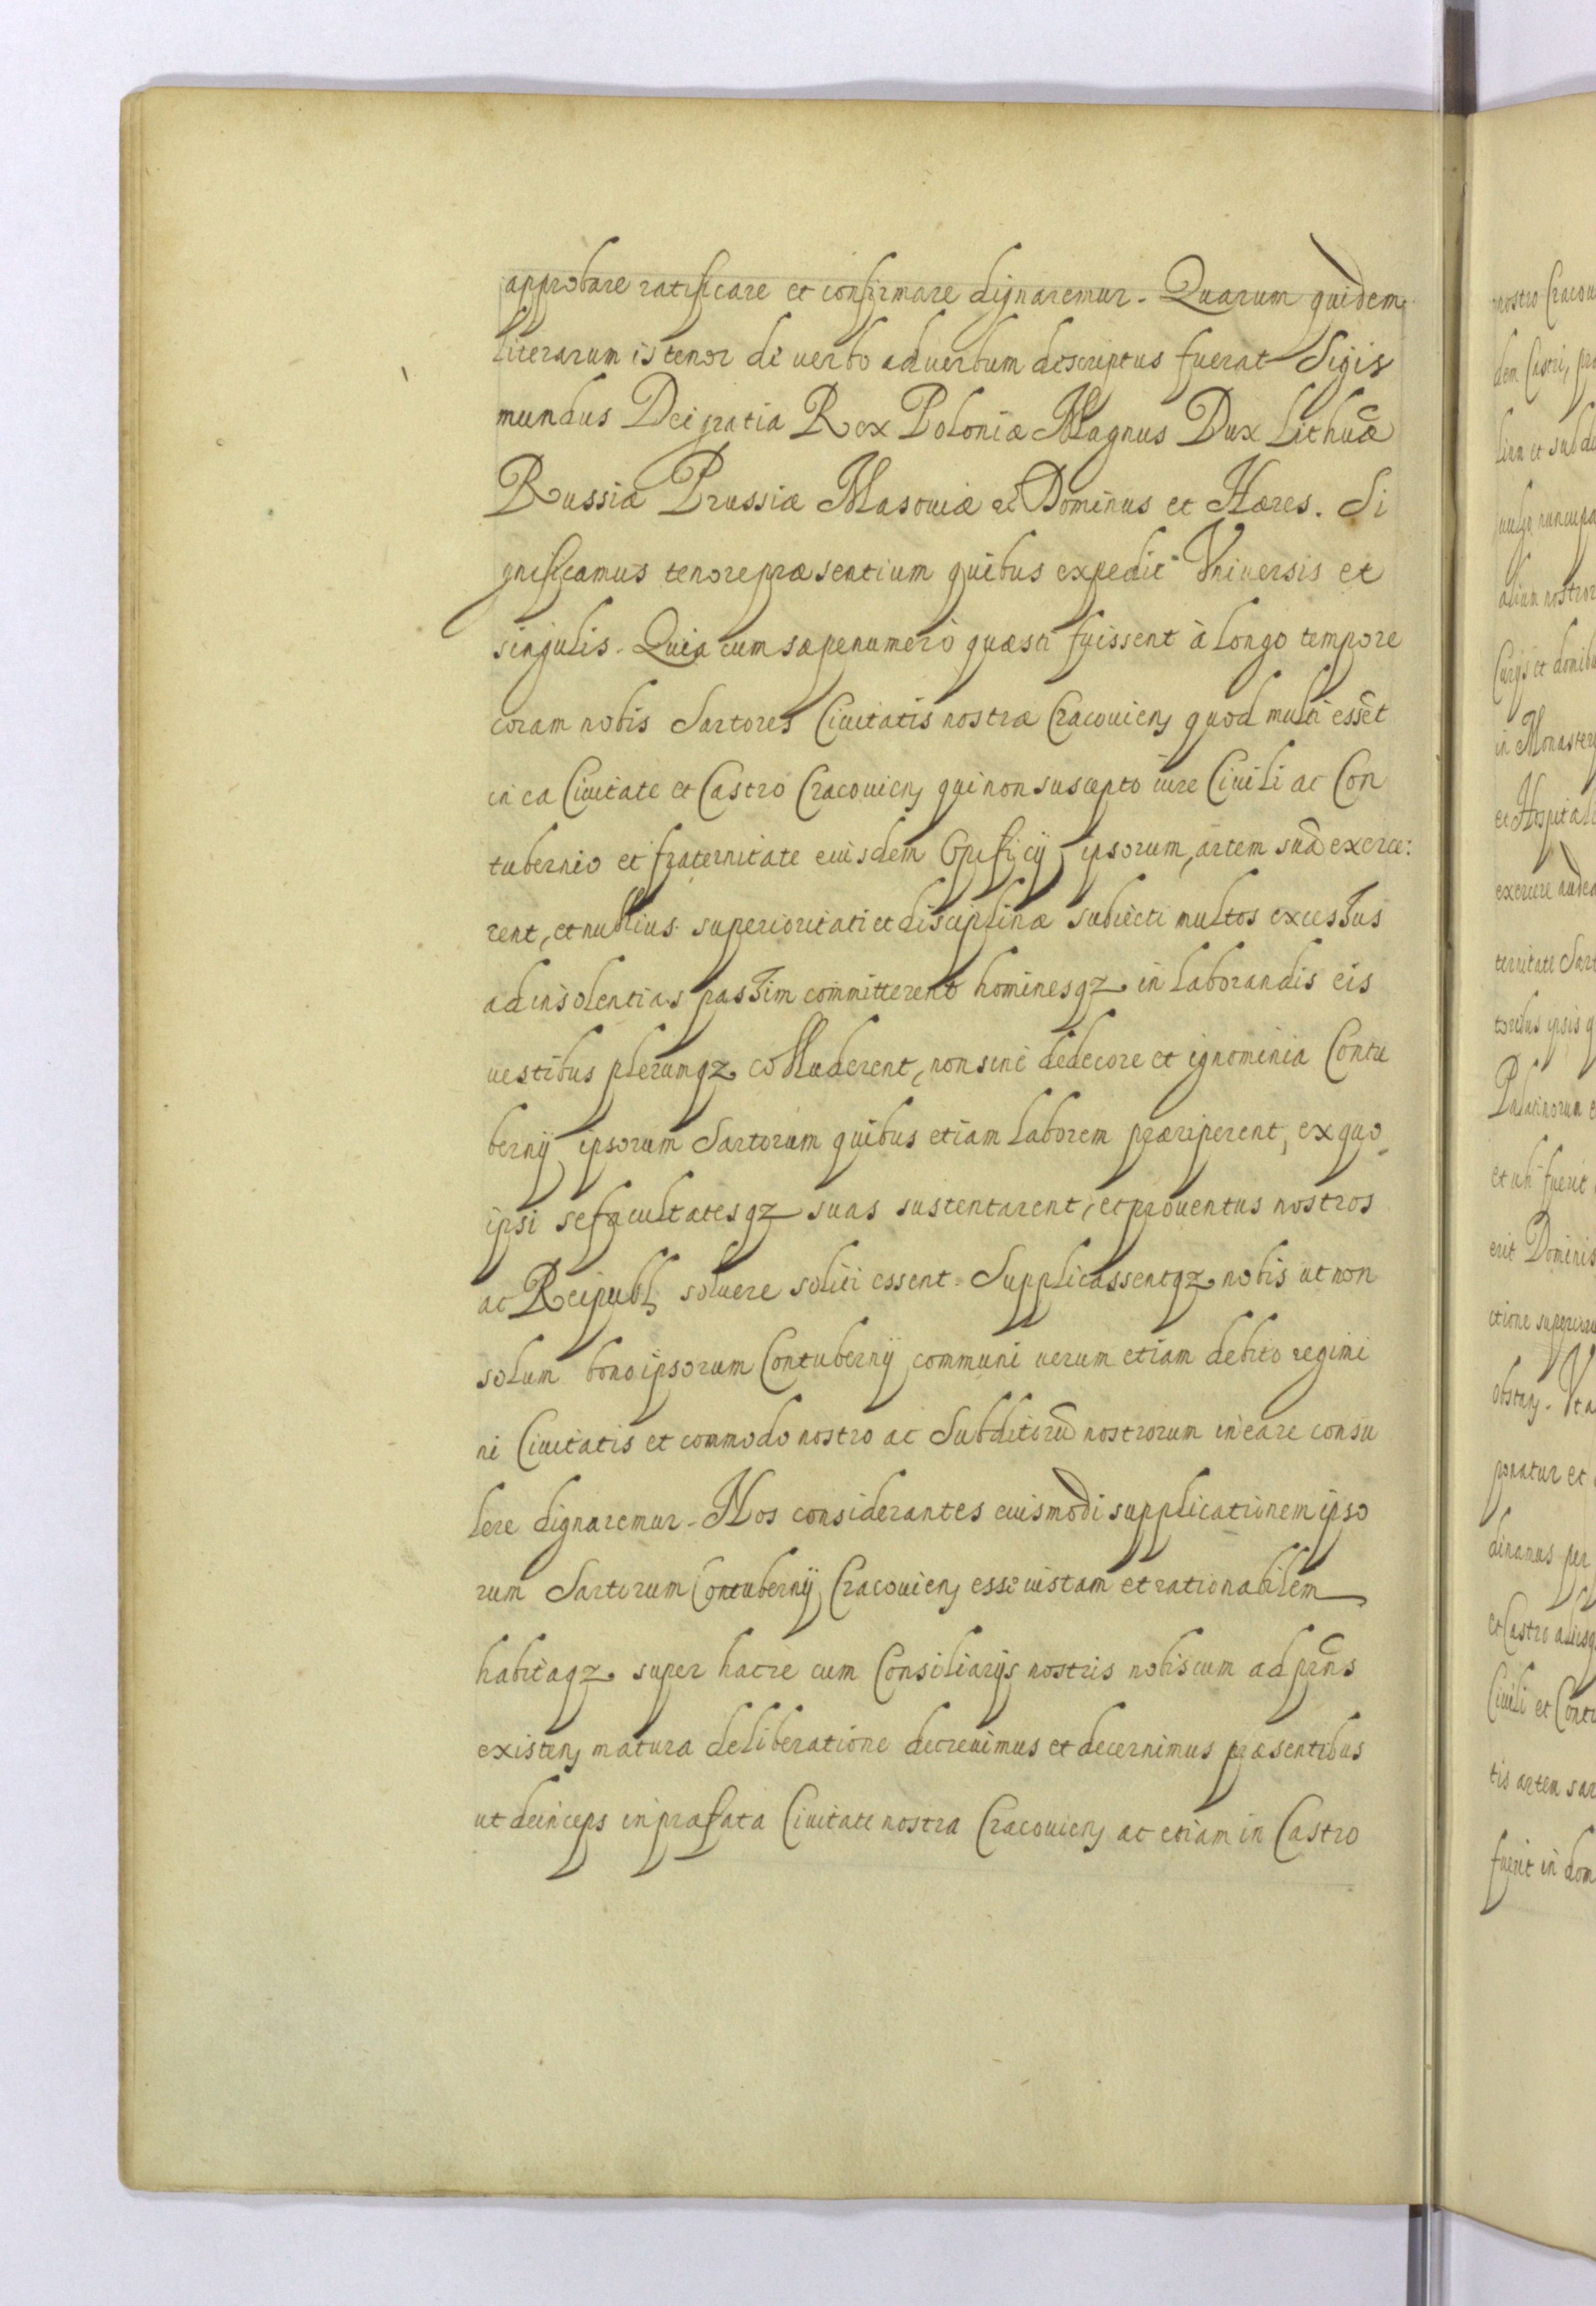 approbare ratificare et confirmare dignaremur. Quarum quidem
literarum is tenor de verbo ad verbum descriptus fuerat Sigis
mundus Dei gratia Rex Poloniæ Magnus Dux Lithuæ
Russiæ Prussiæ Masouiæ et Dominus et Hæres. Si
gnificamus tenore præsentium quibus expedit Vniuersis et
singulis. Quia cum sæpenumerò quæsti fuissent à longo tempore
coram nobis Sartores Ciuitatis nostræ Cracouien, quod multi essēt
in ea Ciuitate et Castro Cracouien, qui non suscepto iure Ciuili ac Con
tubernio et fraternitate eiusdem Opificij ipsorum, artem suā exerce:
rent, et nullius superioritati et disciplinæ subiecti multos excessus
ad insolentias passim committerent hominesqz in laborandis eis
uestibus plerumqz colluderent, non sine dedecore et ignominia Contu
bernij ipsorum Sartorum quibus etiam laborem præriperent, ex quo
ipsi se facultatesqz suas sustentarent, et prouentus nostros
ac Reipubl, soluere soliti essent. Supplicassentqz nobis ut non
solum bono ipsorum Contubernij communi uerum etiam debito regimi
ni Ciuitatis et commodo nostro ac Subditorū nostrorum in ea re consu
lere dignaremur. Nos considerantes eiusmodi supplicationem ipso
rum Sartorum Contubernij Cracouien, esse iustam et rationabilem
habitaqz super hac re cum Consiliarijs nostris nobiscum ad prñs
existen, matura deliberatione decreuimus et decernimus præsentibus
ut deinceps in præfata Ciuitate nostra Cracouien, ac etiam in Castro
nostro Cracou
dem Castri, pro
et sub di
uulgo nuncupa
nostror
Curijs et donibu
in Monaster
et Hospitali
exercere audea
ternitate Sart
toribus ipsis q
Palatinorum e
et uti fuerit
erit Dominis
ctione superioru
obstan. Vt a
ponatur et
dinamus per
et Castro aliisq
Ciuili et Contu
tis artem sar
fuerit in dom